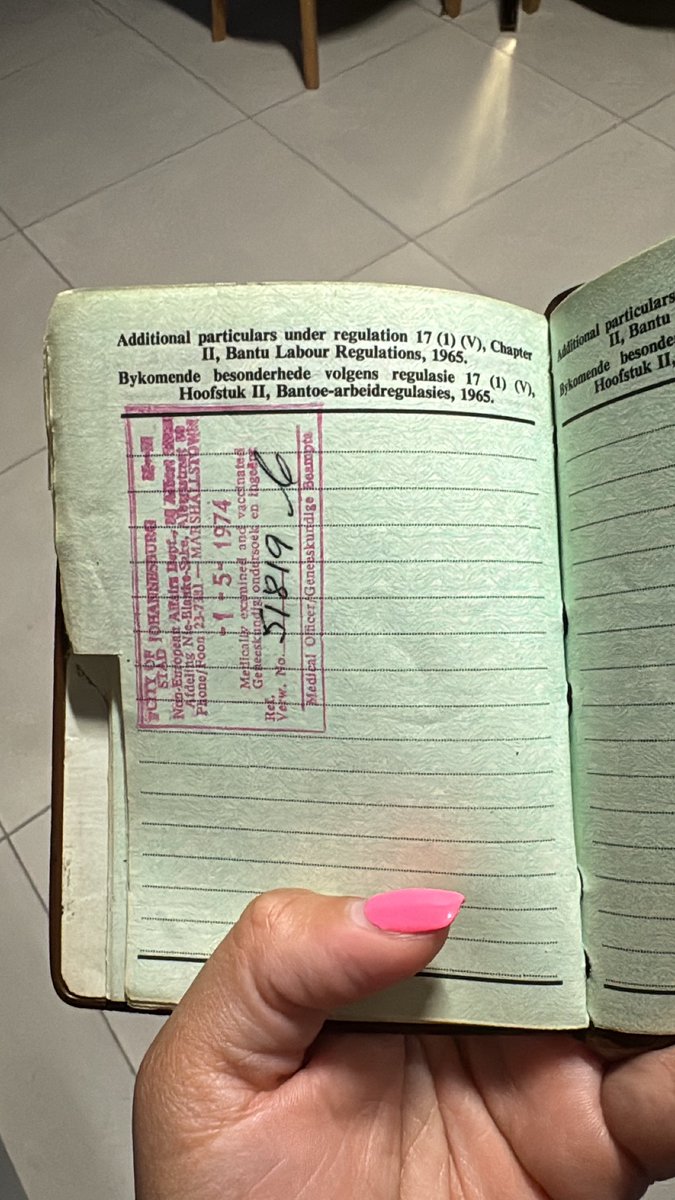 Additional particulars under regulation 17 (1) (V), Chapter
II, Bantu Labour Regulations, 1965.
Bykomende besonderhede volgens regulasie 17 (1) (V),
Hoofstuk II, Bantoe-arbeidregulasies, 1965.
CITY OF JOHANNESBURG
STAD JOHANNESBURG
Non-European Affairs Dept., Albert
Afdeling Nie-Blanke-Sake, Albertstraat
Phone/Foon 23- — MARSHALLSTOWN
-1 -5- 1974
Medically examined and vaccinated
Geneeskundig ondersoek en ingeënt
Ref.
Verw. No. 51819
Medical Officer/Geneeskundige Beampte
Additional particulars
II, Bantu
Bykomende besonde
Hoofstuk II,